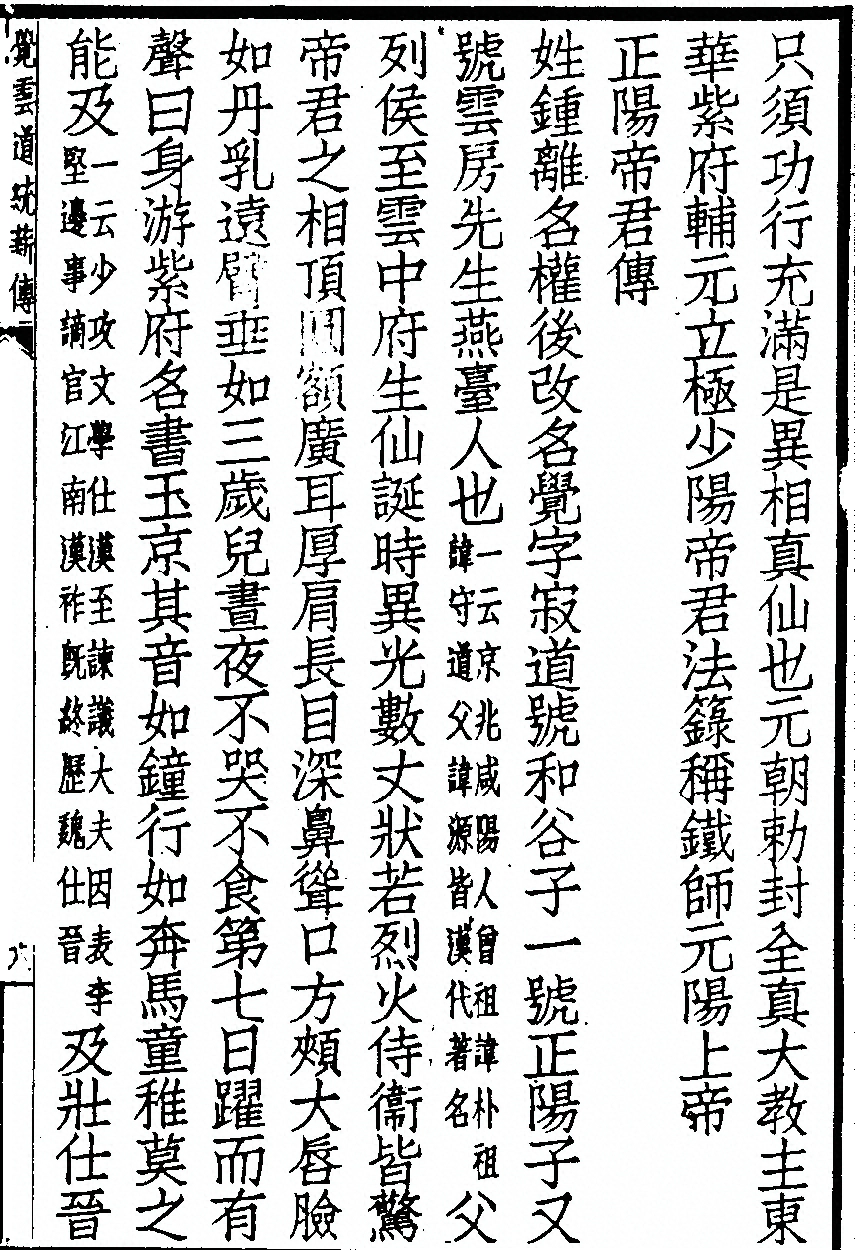 只須功行充滿是異相真仙也元朝勅封全真大教主東
華紫府輔元立極少陽帝君法籙稱鐵師元陽上帝
正陽帝君傳
姓鍾離名權後改名覺字寂道號和谷子一號正陽子又
號雲房先生燕臺人也一云京兆咸陽人曾祖諱朴祖諱守道父諱源皆漢代著名父
列侯至雲中府生仙誕時異光數丈狀若烈火侍衞皆驚
帝君之相頂圓額廣耳厚肩長目深鼻聳口方頰大唇臉
如丹乳遠臂垂如三歲兒晝夜不哭不食第七日躍而有
聲曰身游紫府名書玉京其音如鐘行如奔馬童稚莫之
能及一云少攻文學仕漢至諫議大夫因表李堅邊事謫官江南漢祚既終歷魏仕晉及壯仕晉
覺雲道統薪傳
六